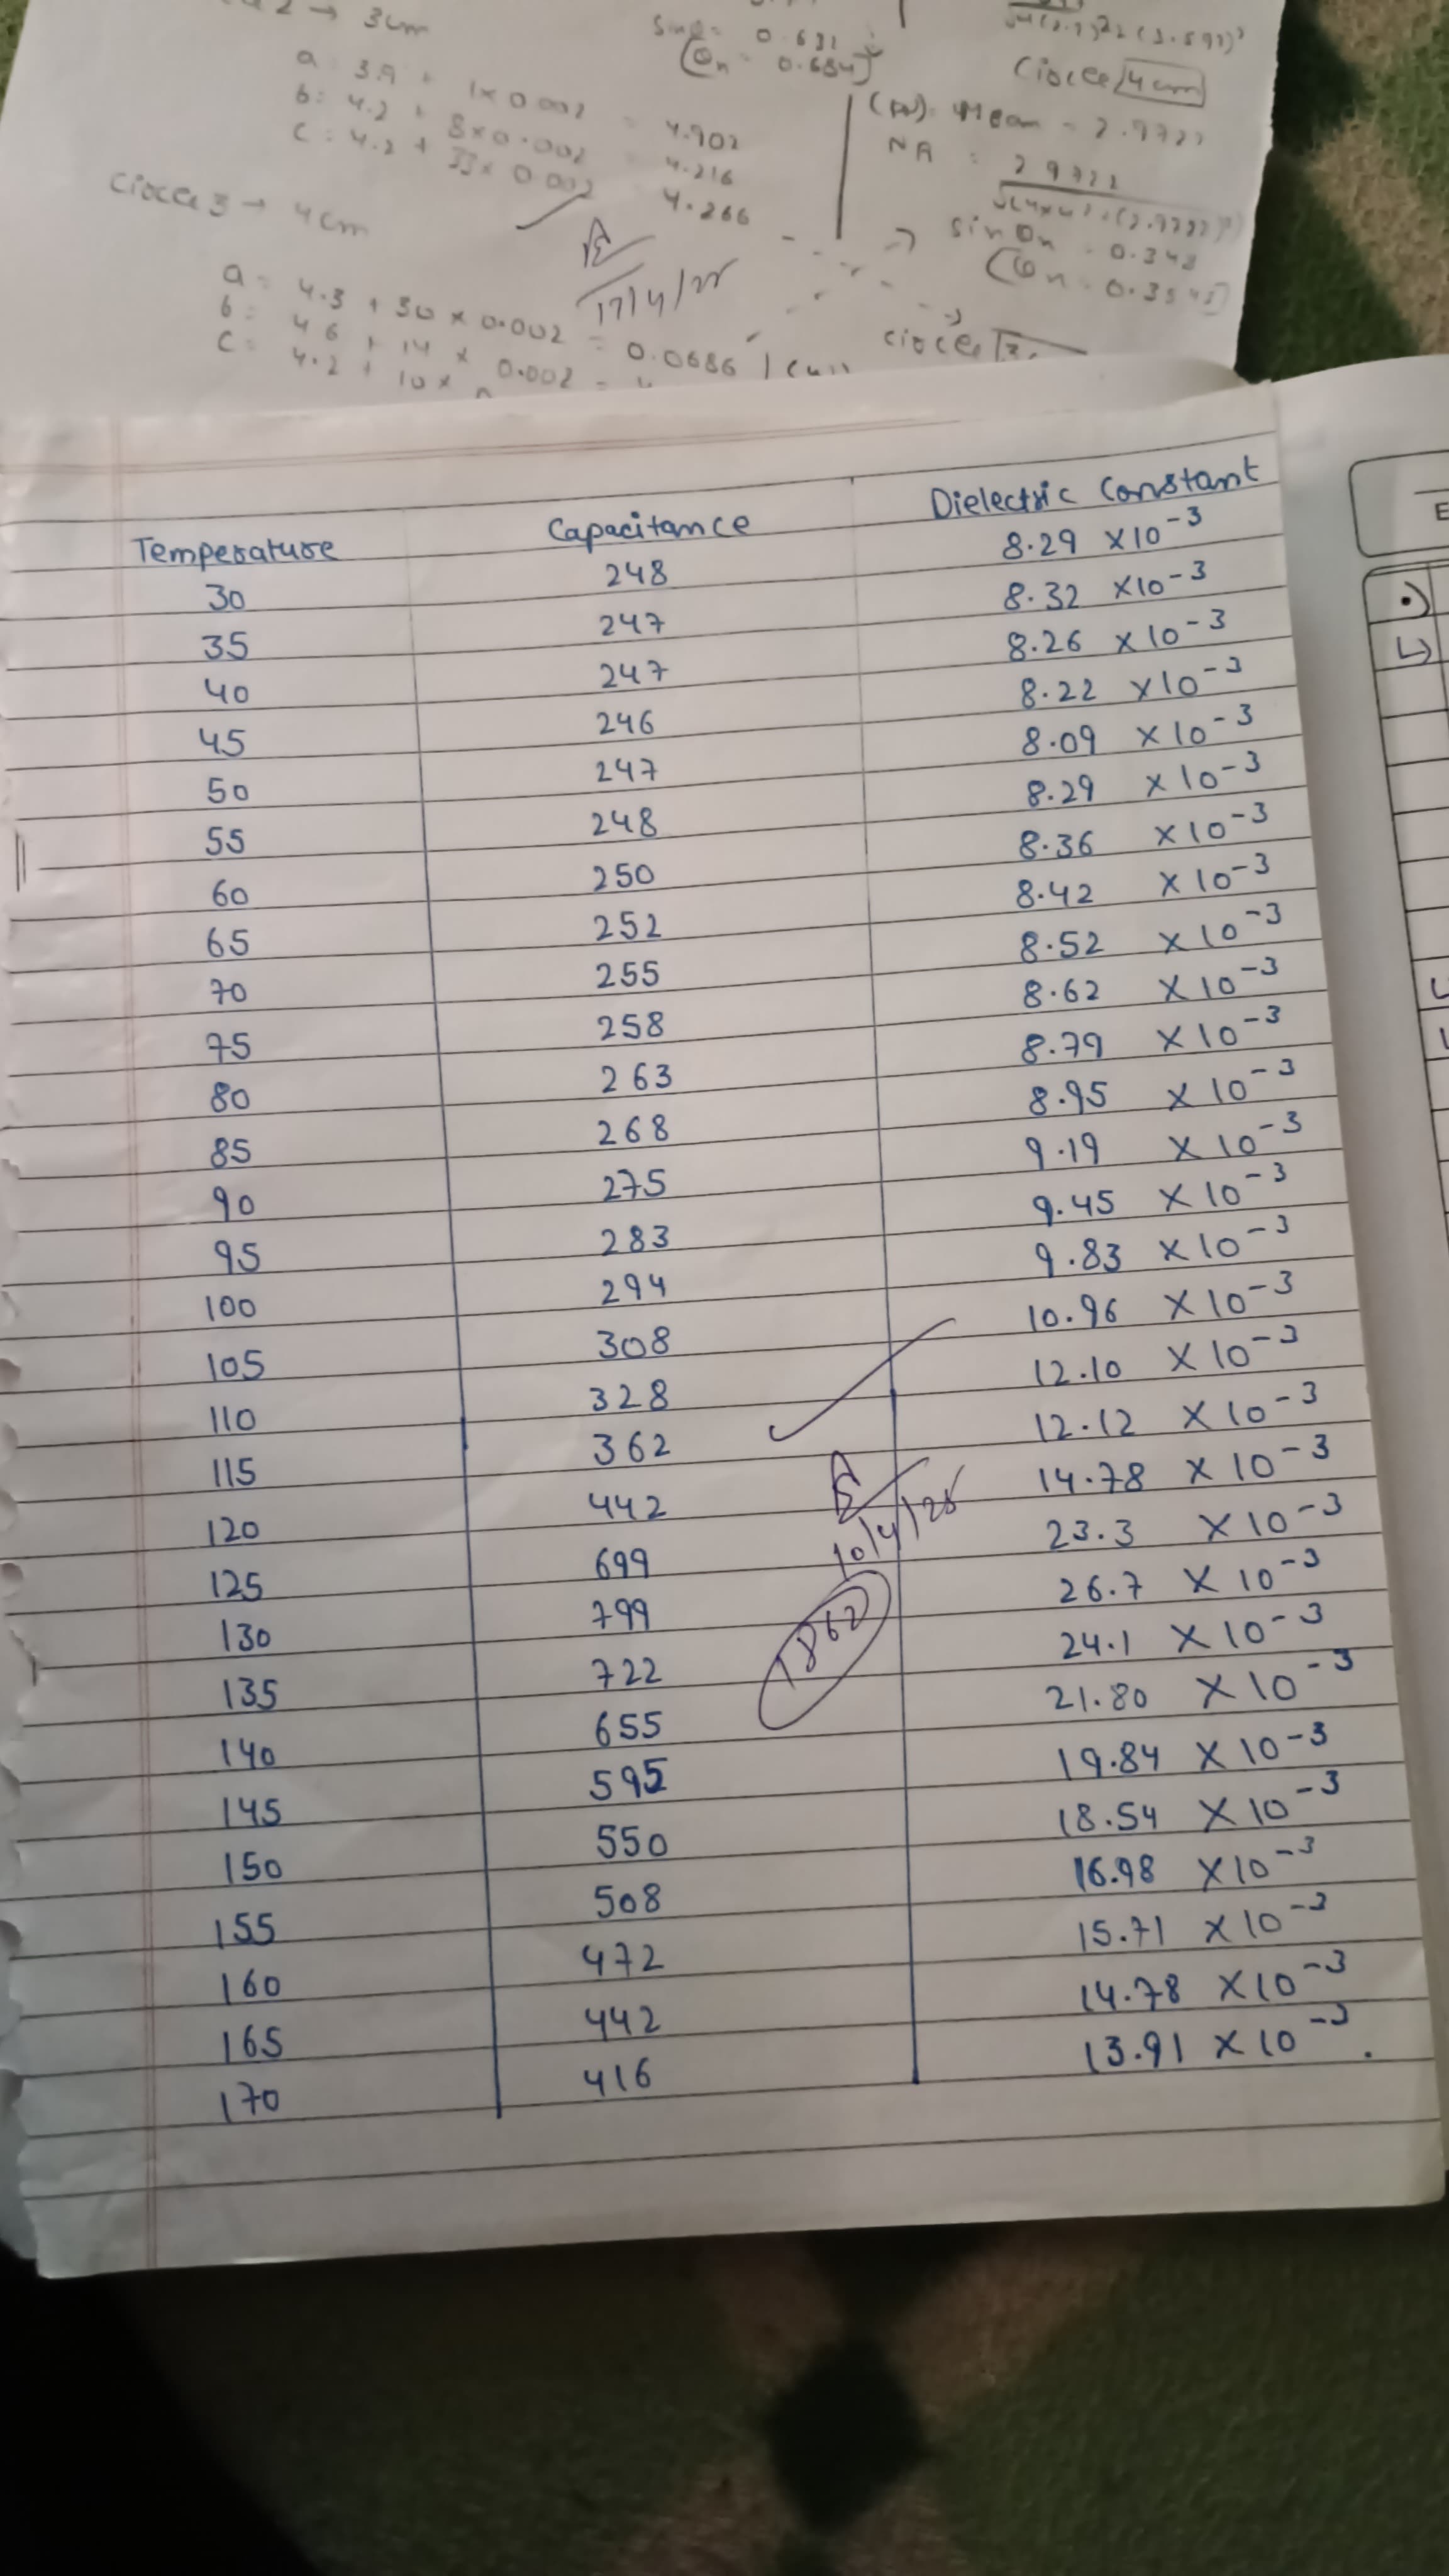 2 → 3cm
a = 3.9 + 1×0.002 = 4.902
b = 4.2 + 8×0.002 = 4.216
c = 4.2 + 33×0.002 = 4.266
0.631
θn = 0.684
4cm
Mean = 2.9722
NA =
sin θn = 0.348
3 → 4cm
17/4/25
a = 4.3 + 30 × 0.002 = 0.0686
b = 4.6 + 14 × 0.002 =
c = 4.2 + 10 ×
Temperature Capacitance Dielectric Constant
30 248 8.29 ×10-3
35 247 8.32 ×10-3
40 247 8.26 ×10-3
45 246 8.22 ×10-3
50 247 8.09 ×10-3
55 248 8.29 ×10-3
60 250 8.36 ×10-3
65 252 8.42 ×10-3
70 255 8.52 ×10-3
75 258 8.62 ×10-3
80 263 8.79 ×10-3
85 268 8.95 ×10-3
90 275 9.19 ×10-3
95 283 9.45 ×10-3
100 294 9.83 ×10-3
105 308 10.96 ×10-3
110 328 12.10 ×10-3
115 362 12.12 ×10-3
120 442 14.78 ×10-3
10/4/25
125 699 23.3 ×10-3
130 799 26.7 ×10-3
1862
135 722 24.1 ×10-3
140 655 21.80 ×10-3
145 595 19.84 ×10-3
150 550 18.54 ×10-3
155 508 16.98 ×10-3
160 472 15.71 ×10-3
165 442 14.78 ×10-3
170 416 13.91 ×10-3.